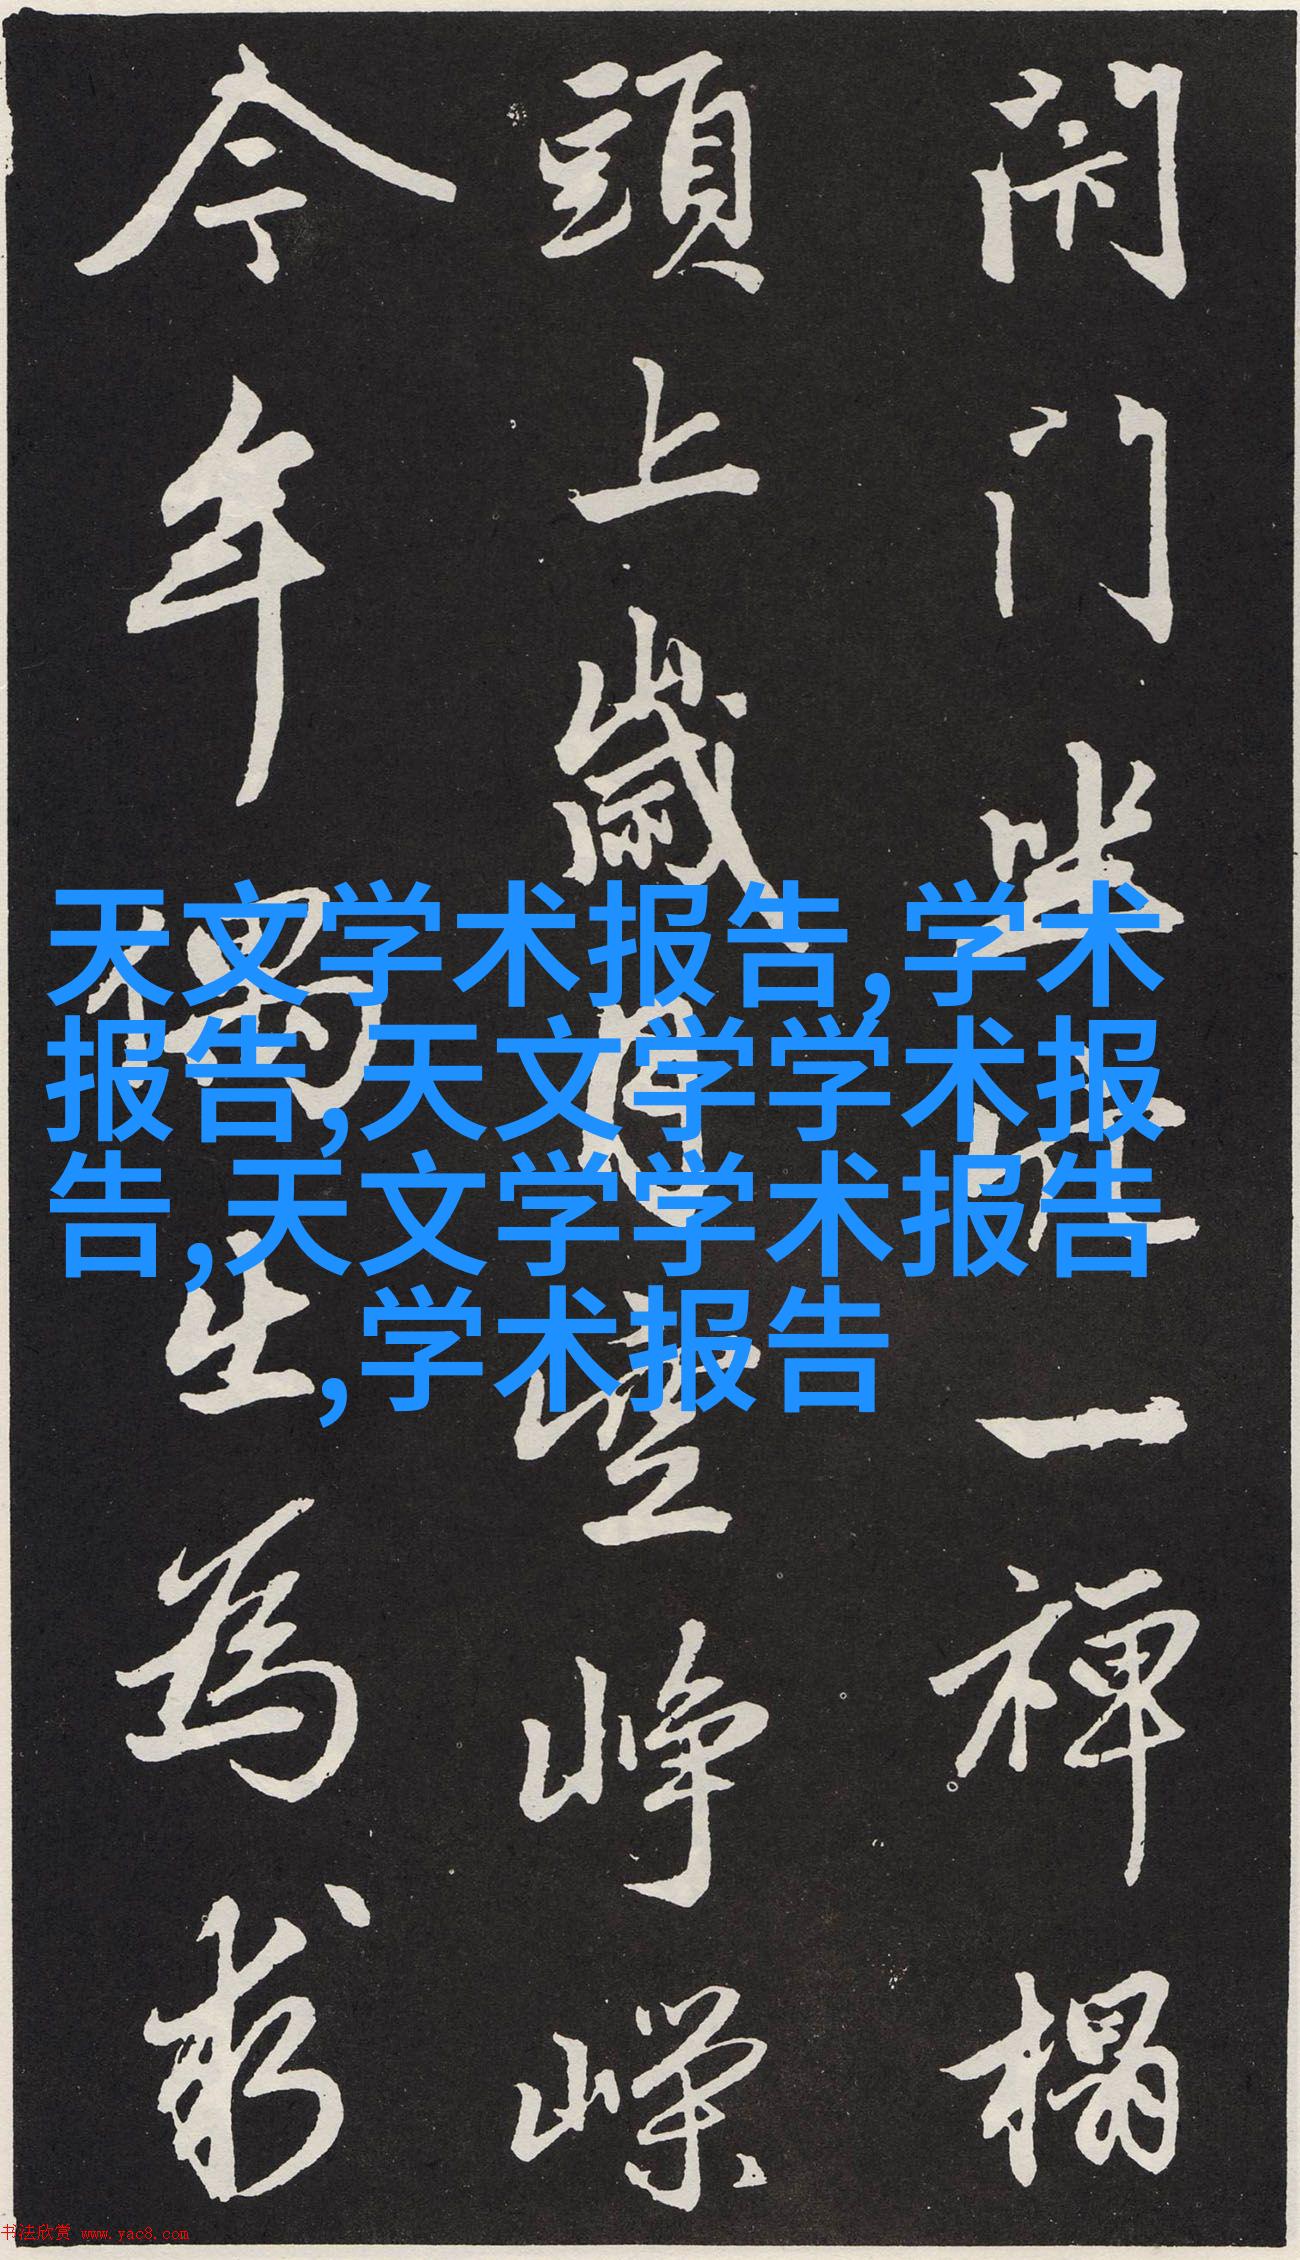 閉門坐穴一禪榻
頭上歲月空崢嶸
今年偶出為求
天文学术报告,学术
报告,天文学学术报
告,天文学学术报告
,学术报告
书法欣赏 www.yac8.com